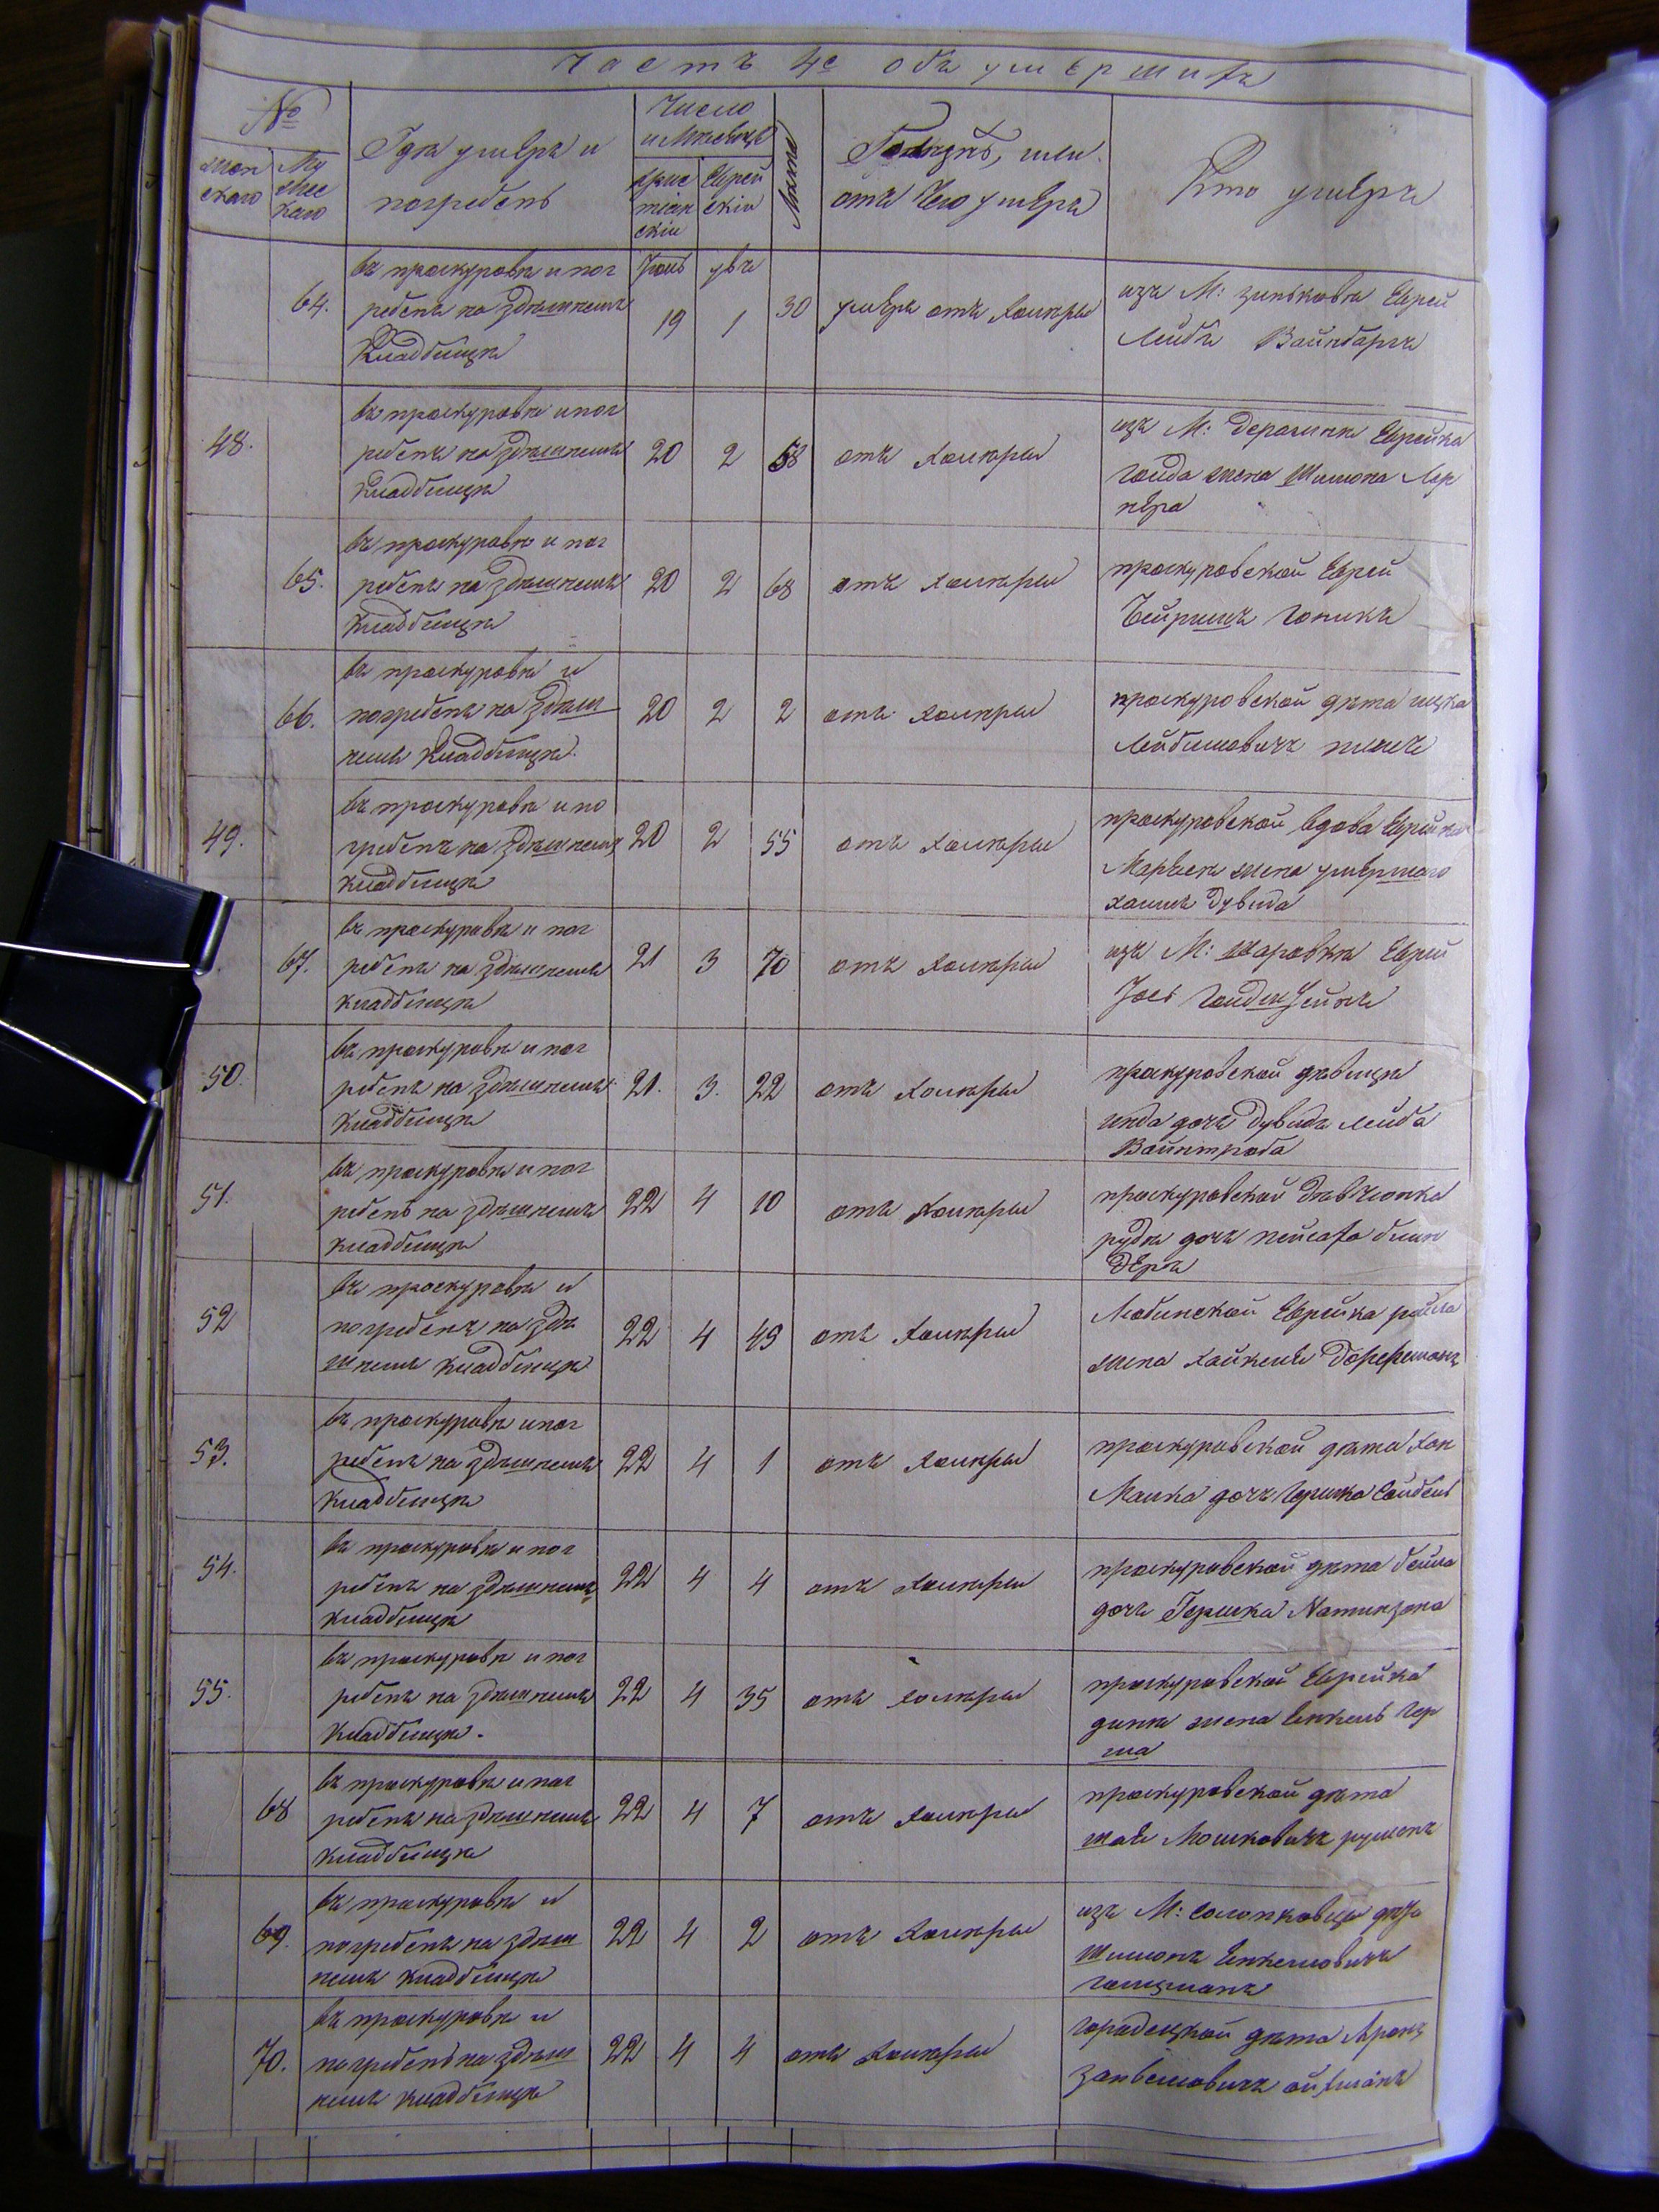 Часть 4я объ умершихъ
№
Женскаго
Мужескаго
Гдѣ умеръ и погребенъ
Число и Мѣсяцъ
Христіанскій
Еврейскій
Лѣта
Болѣзнь, или отъ чего умеръ
Кто умеръ
64.
въ проскуровѣ и пог
ребенъ на здѣшнемъ
Кладбищѣ
Іюль 19
увъ 1
30
умеръ отъ Холеры
изъ М: зиньковъ Еврей
Лейба Вайнбаргъ
48.
въ проскуровѣ и пог
ребенъ на здѣшнемъ
Кладбищѣ
20
2
58
отъ Холеры
изъ М: деражни Еврейка
гольда жена Шимона Лер
нера
65.
въ проскуровѣ и пог
ребенъ на здѣшнемъ
Кладбищѣ
20
2
68
отъ Холеры
проскуровской Еврей
Бейришъ гоникъ
66.
въ проскуровѣ и
погребенъ на здѣш
немъ Кладбищѣ.
20
2
2
отъ Холеры
проскуровской дѣта ицка
Лейбишовичъ
49.
въ проскуровѣ и по
гребенъ на здѣшнемъ
кладбищѣ
20
2
55
отъ Холеры
проскуровской вдова Еврейка
жена умершаго
хаимъ Дувида
67.
въ проскуровѣ и пог
ребенъ на здѣшнемъ
кладбищѣ
21
3
70
отъ Холеры
изъ М: шаровки Еврей
Іось
50.
въ проскуровѣ и пог
ребенъ на здѣшнемъ
Кладбищѣ
21.
3.
22
отъ Холеры
проскуровской дѣвица
инда дочь Дувидъ Лейба
Вайнтроба
51.
въ проскуровѣ и пог
ребенъ на здѣшнемъ
кладбищѣ
22
4
10
отъ Холеры
проскуровской дѣвчонка
рудя дочь пейсаха блин
деръ
52
въ проскуровѣ и
погребенъ на здѣ
шнемъ кладбищѣ
22
4
49
отъ Холеры
Еврейка рейла
жена
53.
въ проскуровѣ и пог
ребенъ на здѣшнемъ
Кладбищѣ
22
4
1
отъ Холеры
проскуровской дѣта Хан
Малка дочь гершка
54.
въ проскуровѣ и пог
ребенъ на здѣшнемъ
кладбищѣ
22
4
4
отъ Холеры
проскуровской дѣта бейла
дочь Гершка Натинзона
55.
въ проскуровѣ и пог
ребенъ на здѣшнемъ
Кладбищѣ.
22
4
35
отъ Холеры
проскуровской Еврейка
дина жена Енкель гер
ша
68
въ проскуровѣ и пог
ребенъ на здѣшнемъ
кладбищѣ
22
4
7
отъ Холеры
проскуровской дѣта
шая Мошковичъ
69.
въ проскуровѣ и
погребенъ на здѣш
немъ кладбищѣ
22
4
2
отъ Холеры
изъ М: солонковецъ дѣта
Шимонъ Енкелловичъ
гольцманъ
70.
въ проскуровѣ и
погребенъ на здѣш
немъ кладбищѣ
22
4
4
отъ Холеры
городецкой дѣта Аронъ